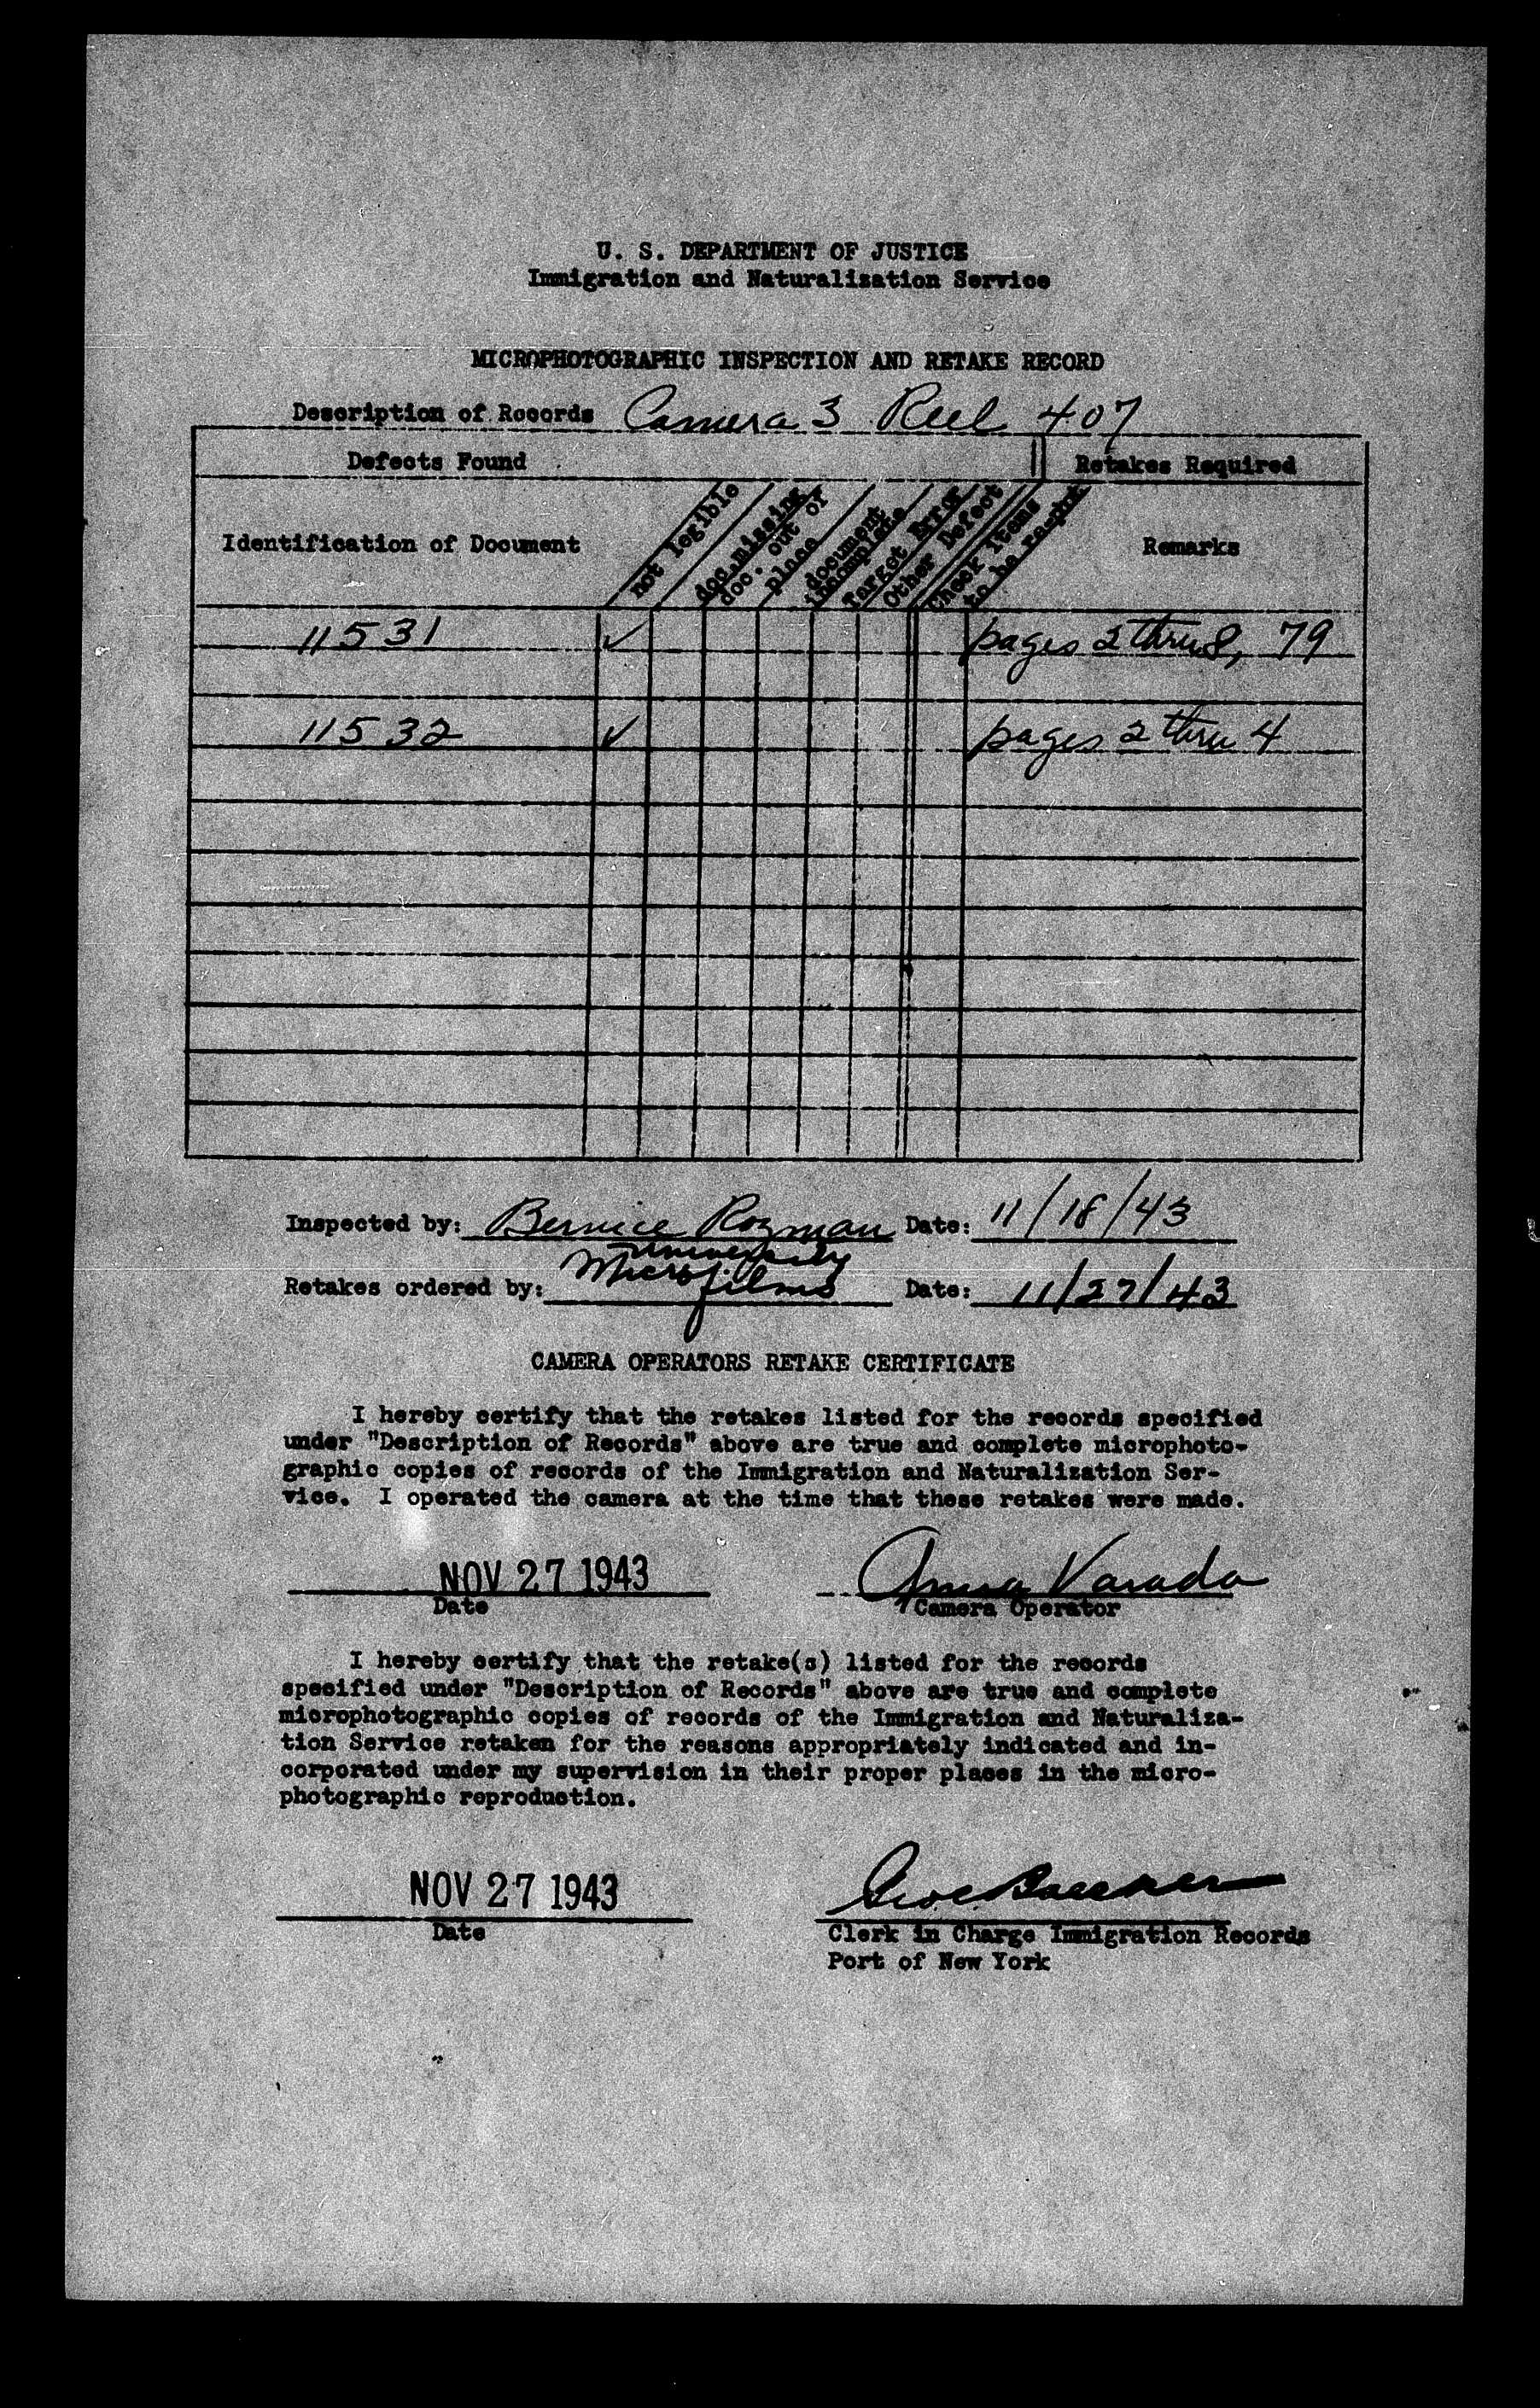 U. S. DEPARTMENT OF JUSTICE
Immigration and Naturalization Service
MICROPHOTOGRAPHIC INSPECTION AND RETAKE RECORD
Description of Records Camera 3 Reel 407
Defects Found Retakes Required
Identification of Document not legible doc. missing doc. out of place document incomplete Target Error Other Defect Check items to be re-pht Remarks
11531 ✓ pages 2 thru 8, 79
11532 ✓ pages 2 thru 4
Inspected by: Bernice Rozman Date: 11/18/43
University
Retakes ordered by: Microfilms Date: 11/27/43
CAMERA OPERATORS RETAKE CERTIFICATE
I hereby certify that the retakes listed for the records specified
under "Description of Records" above are true and complete microphoto-
graphic copies of records of the Immigration and Naturalization Ser-
vice. I operated the camera at the time that these retakes were made.
NOV 27 1943 Anna Varada
Date Camera Operator
I hereby certify that the retake(s) listed for the records
specified under "Description of Records" above are true and complete
microphotographic copies of records of the Immigration and Naturaliza-
tion Service retaken for the reasons appropriately indicated and in-
corporated under my supervision in their proper places in the micro-
photographic reproduction.
NOV 27 1943
Date Clerk in Charge Immigration Records
Port of New York